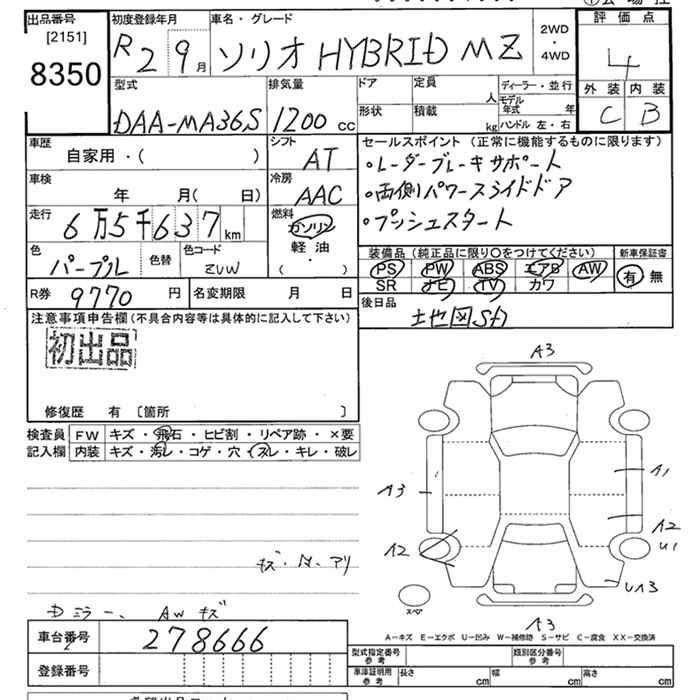 出品番号
[2151]
8350
初度登録年月
R2 9月
車名・グレード
ソリオ HYBRID MZ
2WD
・
4WD
評価点
4
外装 内装
C B
型式
DAA-MA36S
排気量
1200 cc
ドア
定員 人
形状
積載 kg
ディーラー・並行
モデル年式 年
ハンドル 左・右
車歴
自家用・( )
シフト
AT
車検
年 月( 日)
冷房
AAC
走行
6万5千637km
燃料
ガソリン
軽油
( )
色
パープル
色替
色コード
ZUW
R券 9770 円
名変期限 月 日
セールスポイント(正常に機能するものに限ります)
・レーダーブレーキサポート
・両側パワースライドドア
・プッシュスタート
装備品(純正品に限り○をつけてください)
新車保証書
PS PW ABS エアB AW
SR ナビ TV カワ
有 無
後日品
注意事項申告欄(不具合内容等は具体的に記入して下さい)
初出品
修復歴 有 〔箇所 〕
検査員記入欄
FW キズ・飛石・ヒビ割・リペア跡・×要
内装 キズ・汚レ・コゲ・穴・スレ・キレ・破レ
A3
A3
A1
A2
A2
U1
UA3
スペア
A3
キズ・
アリ
ミラー、AWキズ
A-キズ E-エクボ U-凹み W-補修跡 S-サビ C-腐食 XX-交換済
車台番号 278666
登録番号
型式指定番号 参考
類別区分番号 参考
車庫証明用 参考
長さ cm
幅 cm
高さ cm